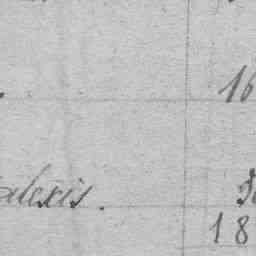 16
alexis.
18